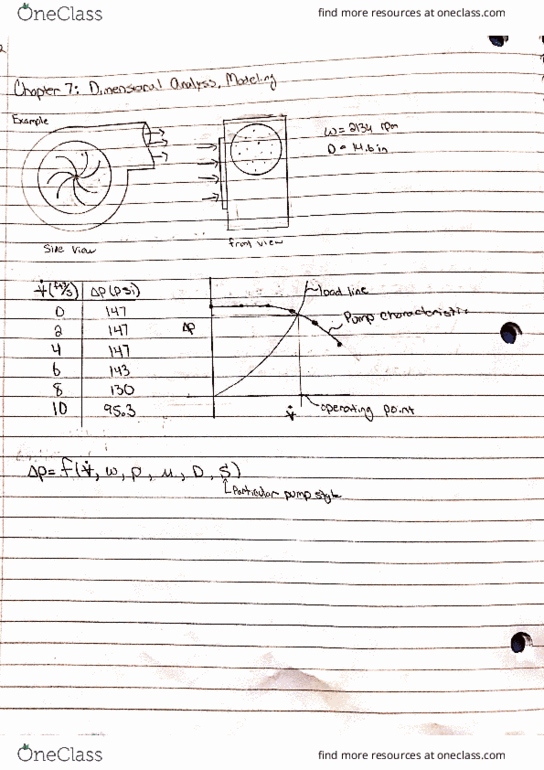 OneClass find more resources at oneclass.com
Chapter 7: Dimensional Analysis, Modeling
Example
ω = 2134 rpm
D = 14.6 in
Side View
front view
V̶̇ (ft³/s) Δp (psi)
0 147
2 147
4 147
6 143
8 130
10 95.3
load line
Pump characteristic
Δp
V̶̇
operating point
Δp = f(V̶̇, ω, ρ, μ, D, S)
Particular pump style
OneClass find more resources at oneclass.com